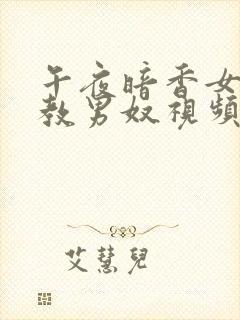 午夜暗香女
教男奴視頻
艾慧兒